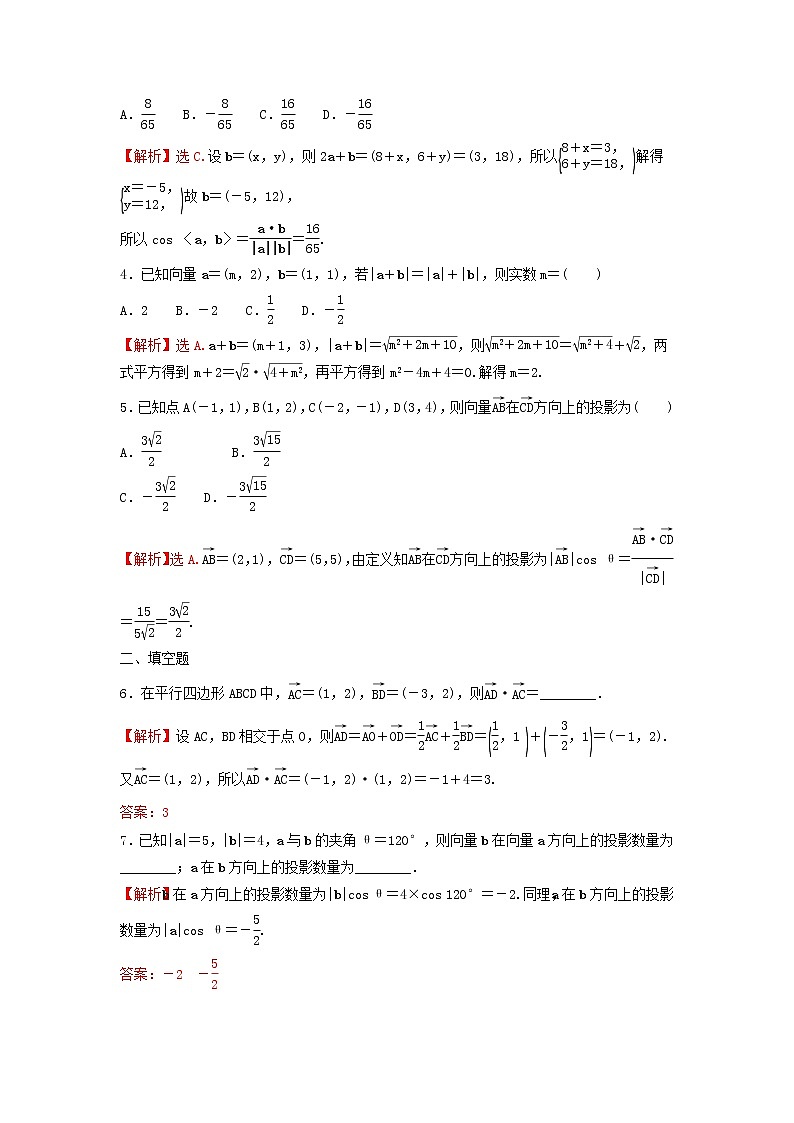 A.8/65 B.-8/65 C.16/65 D.-16/65
【解析】选C.设b=(x,y),则2a+b=(8+x,6+y)=(3,18),所以{8+x=3, 6+y=18,)解得
{x=-5, y=12,)故b=(-5,12),
所以cos〈a,b〉=a·b/|a||b|=16/65.
4.已知向量a=(m,2),b=(1,1),若|a+b|=|a|+|b|,则实数m=( )
A.2 B.-2 C.1/2 D.-1/2
【解析】选A.a+b=(m+1,3),|a+b|=√(m²+2m+10),则√(m²+2m+10)=√(m²+4)+√2,两
式平方得到m+2=√2·√(4+m²),再平方得到m²-4m+4=0.解得m=2.
5.已知点A(-1,1),B(1,2),C(-2,-1),D(3,4),则向量AB→在CD→方向上的投影为( )
A.3√2/2 B.3√15/2
C.-3√2/2 D.-3√15/2
【解析】选A.AB→=(2,1),CD→=(5,5),由定义知AB→在CD→方向上的投影为|AB→|cos θ=AB→·CD→/|CD→|
=15/5√2=3√2/2.
二、填空题
6.在平行四边形ABCD中,AC→=(1,2),BD→=(-3,2),则AD→·AC→=________.
【解析】设AC,BD相交于点O,则AD→=AO→+OD→=1/2AC→+1/2BD→=(1/2,1)+(-3/2,1)=(-1,2).
又AC→=(1,2),所以AD→·AC→=(-1,2)·(1,2)=-1+4=3.
答案:3
7.已知|a|=5,|b|=4,a与b的夹角θ=120°,则向量b在向量a方向上的投影数量为
________;a在b方向上的投影数量为________.
【解析】b在a方向上的投影数量为|b|cos θ=4×cos 120°=-2.同理,a在b方向上的投影
数量为|a|cos θ=-5/2.
答案:-2 -5/2